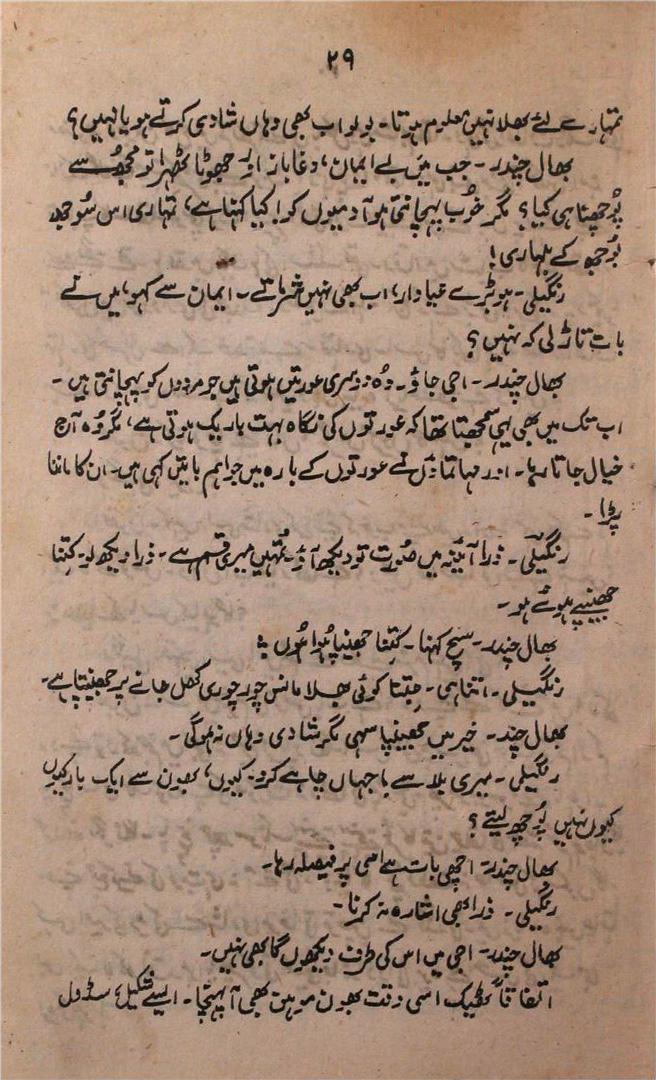 ۲۹
تمہارے لئے بھلا نہیں معلوم ہوتا۔ بولو اب بھی وہاں شادی کرتے ہو یا نہیں؟
بھال چندر۔ جب میں بے ایمان، دغا باز اور جھوٹا ٹھہرا تو مجھ سے
پُوچھنا ہی کیا؟ مگر خُوب پہچانتی ہو آدمیوں کو! کیا کہنا ہے، تمہاری اس سُوجھ
بُوجھ کے بلہاری!
رنگیلی۔ ہو بڑے حیادار، اب بھی نہیں شرماتے۔ ایمان سے کہو، میں نے
بات تاڑ لی کہ نہیں؟
بھال چندر۔ اجی جاؤ۔ وُہ دوسری عورتیں ہوتی ہیں جو مردوں کو پہچانتی ہیں۔
اب تک میں بھی یہی سمجھتا تھا کہ عورتوں کی نگاہ بہت باریک ہوتی ہے، مگر وُہ آج
خیال جاتا رہا۔ اور مہاتماؤں نے عورتوں کے بارہ میں جو اہم باتیں کہی ہیں۔ ان کا ماننا
پڑا۔
رنگیلی۔ ذرا آئینہ میں صُورت تو دیکھ آؤ۔ تُمہیں میری قسم ہے۔ ذرا دیکھ لو۔ کِتنا
جھینپے ہوئے ہو۔
بھال چندر۔ سچ کہنا۔ کِتنا جھینپا ہُوا ہُوں؟
رنگیلی۔ اتنا ہی۔ جِتنا کوئی بھلا مانس چور چوری کھل جانے پر جھینپتا ہے۔
بھال چند۔ خیر میں جھینپا سہی مگر شادی وہاں نہ ہوگی۔
رنگیلی۔ میری بلا سے! جہاں چاہے کرو۔ کیوں، بھون سے ایک بار کیوں
کیوں نہیں پُوچھ لیتے؟
بھال چندر۔ اچھی بات ہے اسی پر فیصلہ رہا۔
رنگیلی۔ ذرا بھی اشارہ نہ کرنا۔
بھال چندر۔ اجی میں اس کی طرف دیکھوں گا بھی نہیں۔
اتفاقاً ٹھیک اسی وقت بھون موہن بھی آ پہنچا۔ ایسے شکیل، سڈول